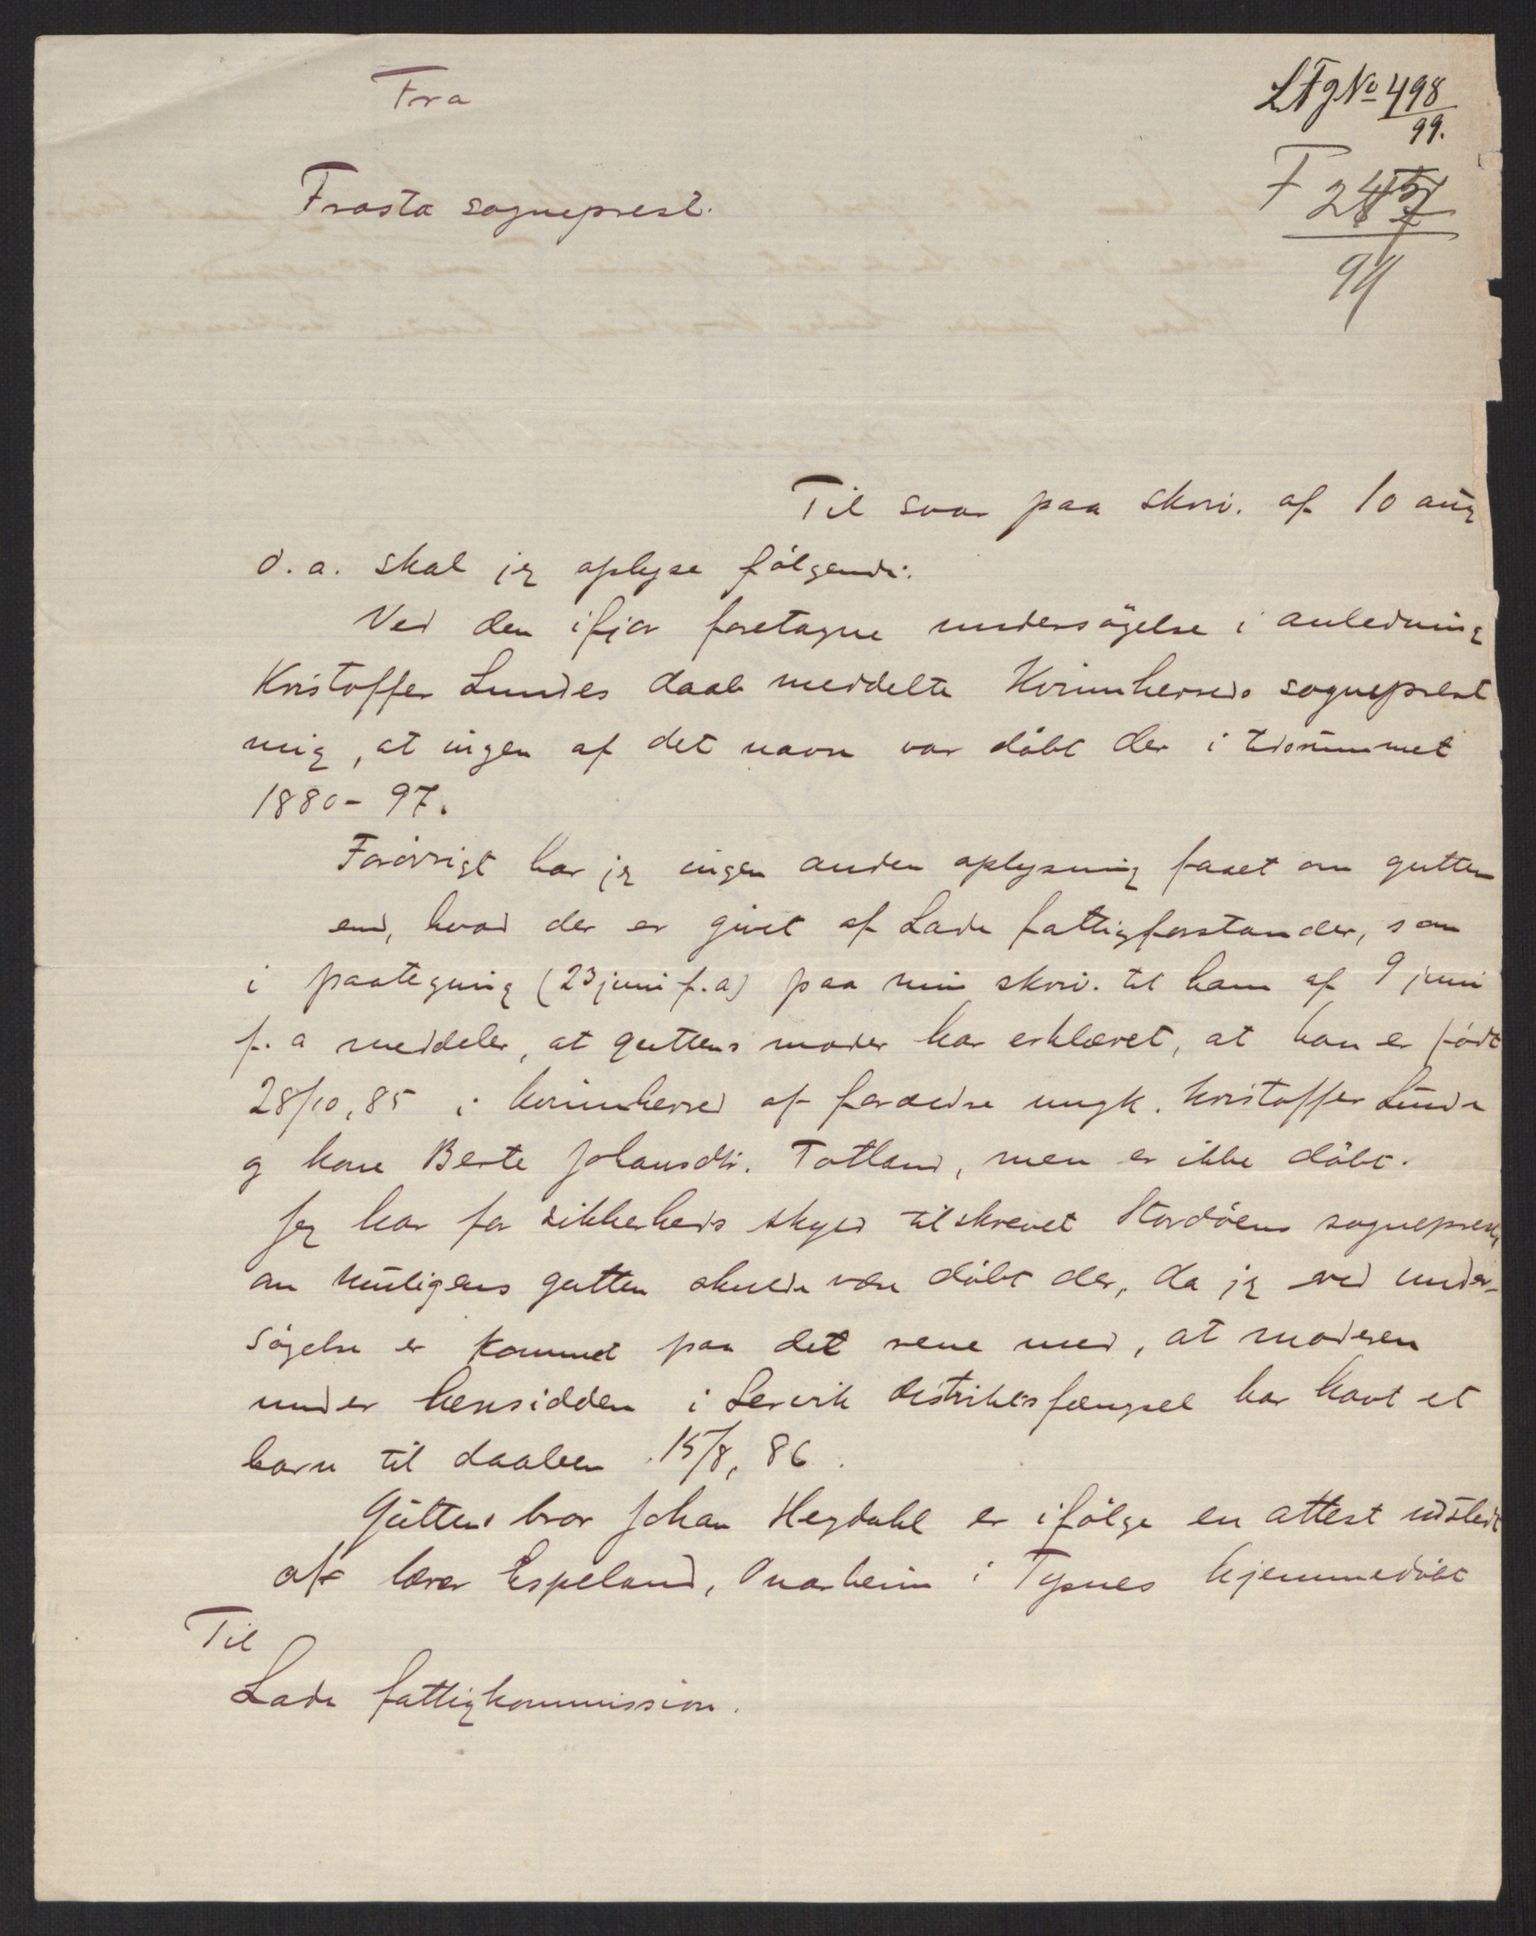 Fra
Frosta sogneprest.
LFgNo 498
99.
F 2457
94
Til svar paa skriv. af 10 aug
d. a. skal jeg oplyse følgende:
Ved den ifjor foretagne undersögelse i anledning
Kristoffer Lundes daab meddelte Kvinnherreds sogneprest
mig, at ingen af det navn var döbt der i tidsrummet
1880-97.
Forövrigt har jeg ingen anden oplysning faaet om gutten
end, hvad der er givet af Lade fattigforstander, som
i paategning (23 juni f.a) paa min skriv. til ham af 9 juni
f. a meddeler, at guttens moder har erklæret, at han er födt
28/10,85 i kvinnherred af forældre ungk. Kristoffer Lunde
og kone Berte Johansdtr. Totland, men er ikke döbt.
Jeg har for sikkerheds skyld tilskrevet Stordöens sogneprest,
om muligens gutten skulde være döbt der, da jeg ved under-
sögelse er kommet paa det rene med, at moderen
under hensidden i Lervik distriktsfængsel har havt et
barn til daaben 15/8, 86.
Guttens bror Johan Hegdahl er ifölge en attest udstedt
af lærer Espeland, Onarheim i Tysnes hjemmedöbt
Til
Lade fattigkommission.